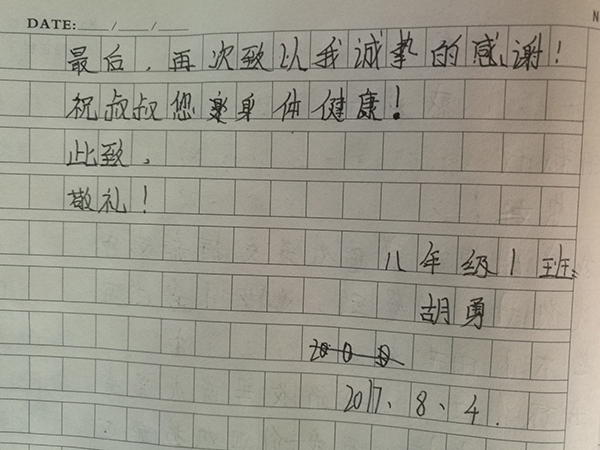 DATE: ___/___/___
最后，再次致以我诚挚的感谢！
祝叔叔您身体健康！
此致，
敬礼！
八年级1班
胡勇
2017、8、4.